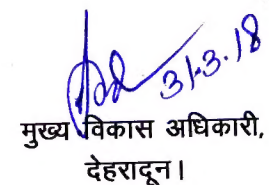 31-3.18
मुख्य विकास अधिकारी,
देहरादून।